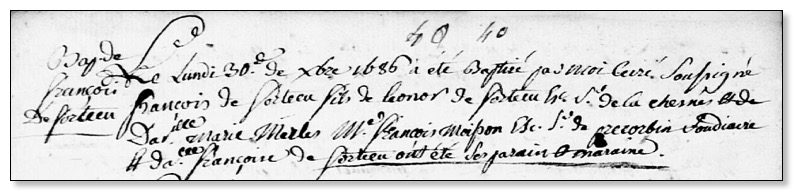 48 40
Bap. de
François
De Sorteeu
Le Lundi 30.e de xbre 1686 a été Baptisé par moi Curé Soussigné
François de Sorteeu fils de Leonor de Sorteeu Esc. Sr. de la chesnée & de
Dalle. Marie Merles Mre. François Moisson Esc. Sr. de precorbin Soudiacre
& dalle. Françoise de Sorteeu ont été Ses parain & maraine.